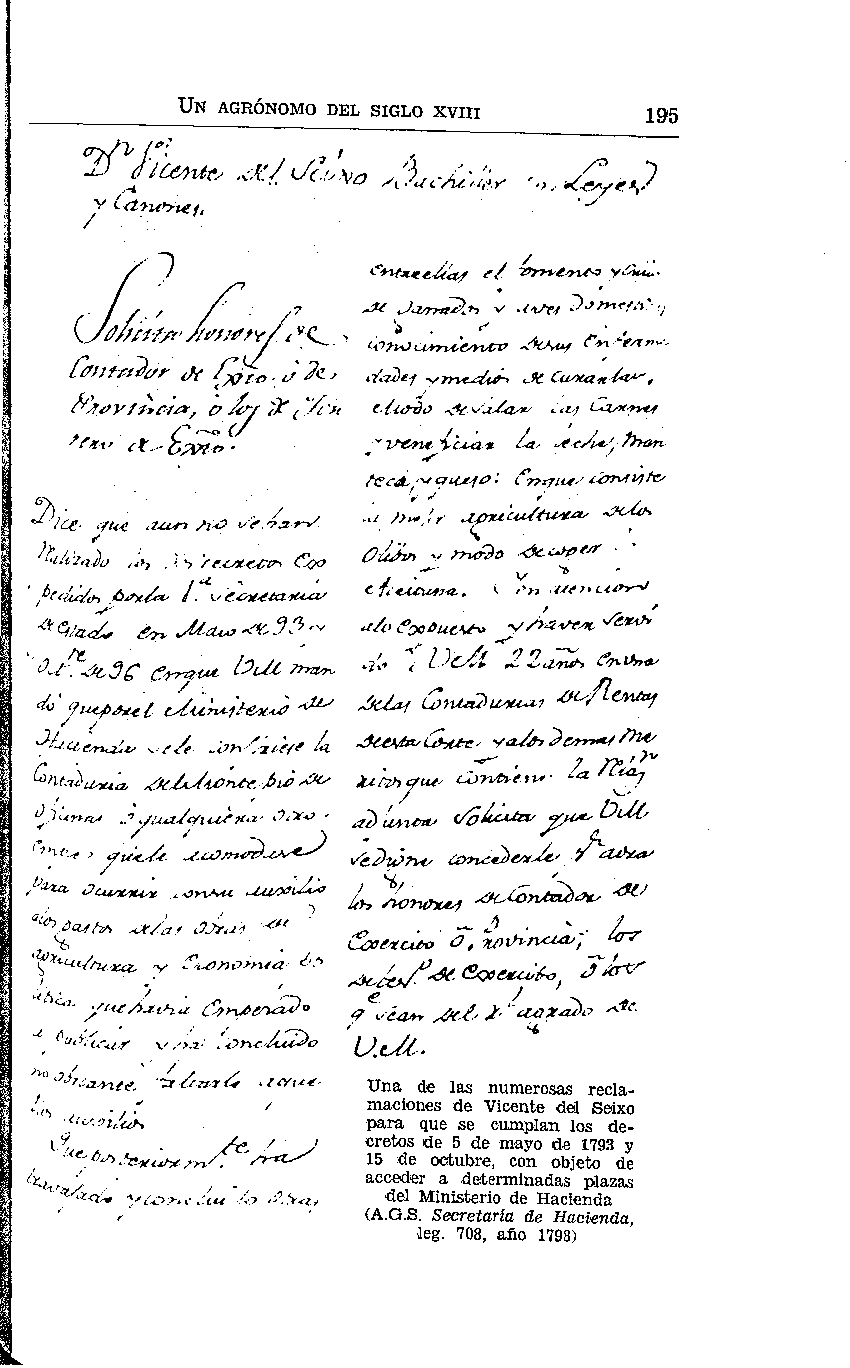 UN AGRÓNOMO DEL SIGLO XVIII
195
Dn Vicente del Seixo Bachiller en Leyes
y Canones.
Solicita honores de
Contador de Exto. ó de
Provincia, ó los de
de Exto.
Dice que aun no se han
realizado los Decretos ex
pedidos por la 1.a Secretaria
de Estado en Maio de 93 y
de 96 en que VM man
dó que por el Ministerio de
Hacienda se le confiriese la
Contaduria del Monte pio de
oficinas ó qualquiera otro
empleo que le acomodase
para ocurrir con su auxilio
a los gastos de las obras de
agricultura y Economia
que havia empezado
a publicar y ha concluido
no obstante faltarle aque
llos auxilios
Que posteriormte. ha
travajado y concluido obras
entre ellas el fomento y cria
de Ganados y aves domesticas
conocimiento de sus enferme
dades y medios de curarlas.
Modo de salar las Carnes
y veneficiar la leche, man
teca, y queso: En que consiste
la mejor agricultura de los
Olibos y modo de coger
Aceituna. Con atencion
a lo expuesto y haver servi
do á VM 22 años en una
de las Contadurias de Rentas
de esta Corte y a los demas me
ritos que contiene la Rlon
adjunta Solicita que VM
se digne concederle
los honores de Contador de
Exercito ó Provincia; los
de de Exercito, ó los
qe sean del Rl agrado de
V.M.
Una de las numerosas recla-
maciones de Vicente del Seixo
para que se cumplan los de-
cretos de 5 de mayo de 1793 y
15 de octubre, con objeto de
acceder a determinadas plazas
del Ministerio de Hacienda
(A.G.S. Secretaría de Hacienda,
leg. 708, año 1798)